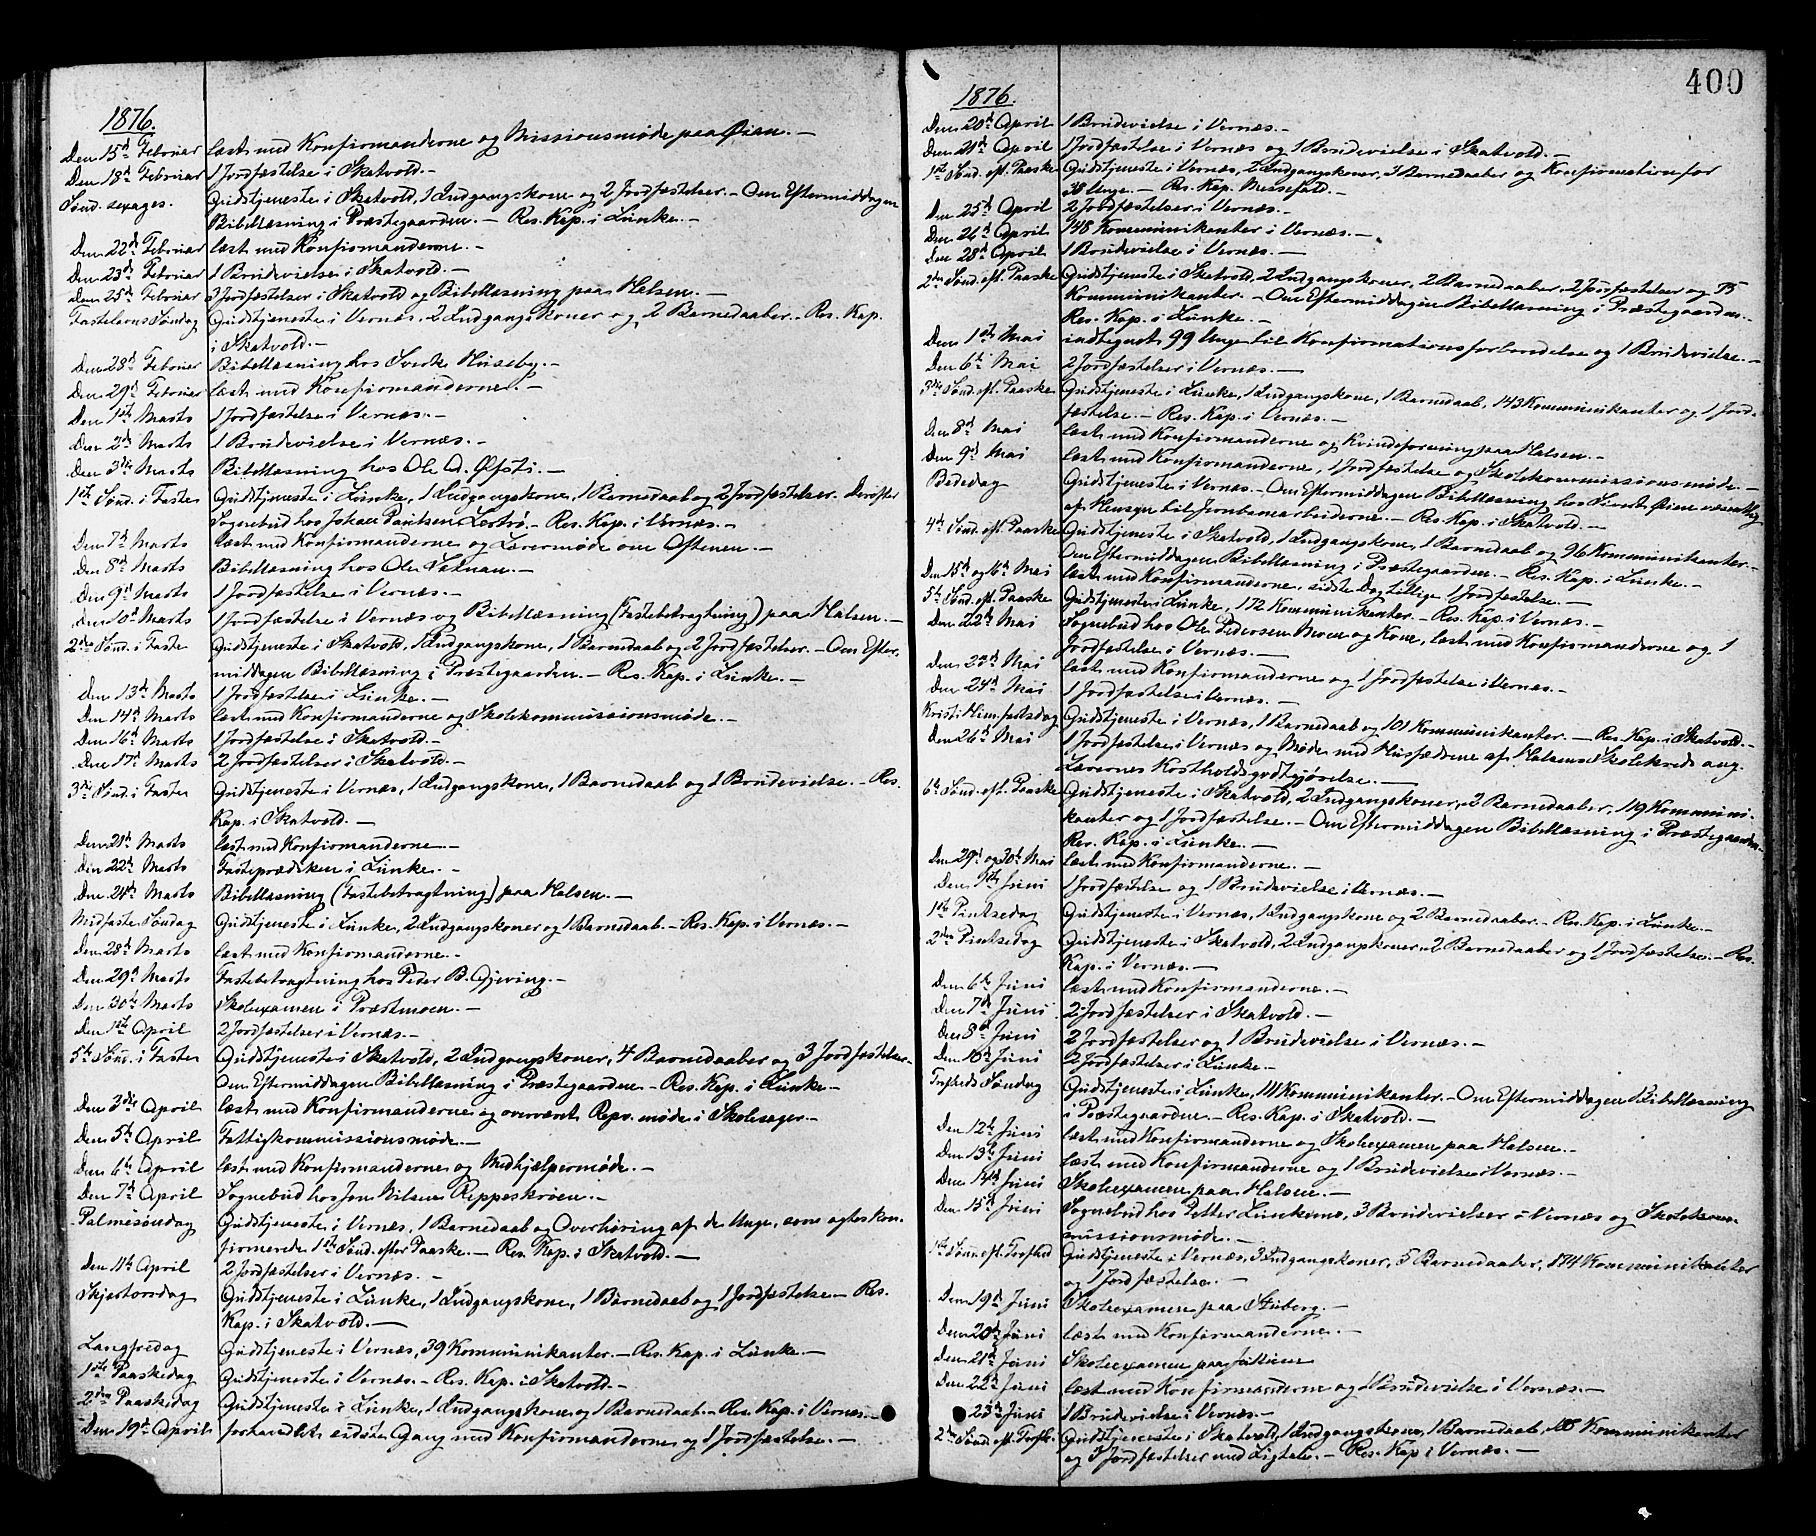 1876.
Den 15d Februar læst med Konfirmanderne og Missionsmøde paa Øian. —
Den 18d Februar 1 Jordfæstelse i Skatvold. —
Sønd. sexages. Gudstjeneste i Skatvold, 1 Indgangskone og 2 Jordfæstelser. — Om Eftermiddagen
Bibellæsning i Præstegaarden. — Res. Kap. i Lünke. —
Den 22de Februar læst med Konfirmanderne. —
Den 23de Februar 1 Brudevielse i Skatvold. —
Den 25d Februar 3 Jordfæstelser i Skatvold og Bibellæsning paa Halsen. —
Fastelavns Søndag Gudstjeneste i Vernæs, 2 Indgangskoner og 2 Barnedaaber. — Res. Kap.
i Skatvold. —
Den 28d Februar Bibellæsning hos Svenke Husseby. —
Den 29d Februar læst med Konfirmanderne. —
Den 1ste Marts 1 Jordfæstelse i Vernæs. —
Den 2d Marts 1 Brudevielse i Vernæs. —
Den 3die Marts Bibellæsning hos Ole O. Øfsti. —
1ste Sønd. i Faste Gudstjeneste i Lünke, 1 Indgangskone, 1 Barnedaab og 2 Jordfæstelser. Derefter
Sognebud hos Johan Paulsen Lerstrø. — Res. Kap. i Vernæs. —
Den 7d Marts læst med Konfirmanderne og Læremøde om Aftenen. —
Den 8d Marts Bibellæsning hos Ole Sætnan. —
Den 9d Marts 1 Jordfæstelse i Vernæs. —
Den 10d Marts 1 Jordfæstelse i Vernæs og Bibellæsning (Fastebetragtning) paa Halsen. —
2den Sønd. i Faste Gudstjeneste i Skatvold, 1 Indgangskone, 1 Barnedaab og 2 Jordfæstelser. — Om Efter,
middagen Bibellæsning i Præstegaarden. — Res. Kap. i Lünke. —
Den 13d Marts 1 Jordfæstelse i Lünke. —
Den 14d Marts læst med Konfirmanderne og Skolekommissionsmøde. —
Den 16d Marts 1 Jordfæstelse i Skatvold. —
Den 17d Marts 2 Jordfæstelser i Skatvold. —
3die Sønd. i Faste Gudstjeneste i Vernæs, 1 Indgangskone, 1 Barnedaab og 1 Brudevielse. — Res.
Kap. i Skatvold. —
Den 21d Marts læst med Konfirmanderne. —
Den 22de Marts Fasteprædiken i Lünke. —
Den 24d Marts Bibellæsning (Fastebetragtning) paa Halsen. —
Midfaste Søndag Gudstjeneste i Lünke, 2 Indgangskoner og 1 Barnedaab. — Res. Kap. i Vernæs. —
Den 28d Marts læst med Konfirmanderne. —
Den 29d Marts Fastebetragtning hos Peder B. Gjeving. —
Den 30te Marts Skoleexamen i Præstmoen. —
Den 1ste April 2 Jordfæstelser i Vernæs. —
5te Sønd. i Faste Gudstjeneste i Skatvold, 2 Indgangskoner, 4 Barnedaaber og 3 Jordfæstelser. —
Om Eftermiddagen Bibellæsning i Præstegaarden. — Res. Kap. i Lünke. —
Den 3die April læst med Konfirmanderne og overværet Repr. møde i Skolesager. —
Den 5te April Fattigkommissionsmøde. —
Den 6te April læst med Konfirmanderne og Medhjælpermøde. —
Den 7de April Sognebud hos Jon Nilsen Reppeskrøen. —
Palmesøndag Gudstjeneste i Vernæs, 1 Barnedaab og Overhøring af de Unge, som agtes kon,
firmerede 1ste Sønd. efter Paaske. — Res. Kap. i Skatvold. —
Den 11te April 2 Jordfæstelser i Vernæs. —
Skjertorsdag Gudstjeneste i Lünke, 1 Indgangskone, 1 Barnedaab og 1 Jordfæstelse. — Res.
Kap. i Skatvold. —
Langfredag Gudstjeneste i Vernæs, 39 Kommunikanter. — Res. Kap. i Lünke. —
1ste Paaskedag Gudstjeneste i Vernæs. — Res. Kap. i Skatvold. —
2den Paaskedag Gudstjeneste i Lünke, 1 Indgangskone og 1 Barnedaab. — Res. Kap. i Vernæs. —
Den 19d April forhandlet sidste Gang med Konfirmanderne og 1 Jordfæstelse. —
400
1876.
Den 20d April 1 Brudevielse i Vernæs. —
Den 21d April 1 Jordfæstelse i Vernæs og 1 Brudevielse i Skatvold. —
1ste Sønd. eft. Paaske Gudstjeneste i Vernæs, 2 Indgangskoner, 3 Barnedaaber og Konfirmation for
38 Unge. — Res. Kap. Messefald. —
Den 25d April 2 Jordfæstelser i Vernæs. —
Den 26d April 148 Kommunikanter i Vernæs. —
Den 28d April 1 Brudevielse i Vernæs. —
2den Sønd. eft. Paaske Gudstjeneste i Skatvold, 2 Indgangskoner, 2 Barnedaaber, 2 Jordfæstelser og 75
Kommunikanter. — Om Eftermiddagen Bibellæsning i Præstegaarden. —
Res. Kap. i Lünke. —
Den 1ste Mai indtegnet 99 Unge til Konfirmationsforberedelse og 1 Brudevielse. —
Den 6te Mai 2 Jordfæstelser i Vernæs. —
3die Sønd. eft. Paaske Gudstjeneste i Lünke, 1 Indgangskone, 1 Barnedaab, 143 Kommunikanter og 1 Jord,
fæstelse. — Res. Kap. i Vernæs. —
Den 8d Mai læst med Konfirmanderne og Kvindeforening paa Halsen. —
Den 9d Mai læst med Konfirmanderne, 1 Jordfæstelse og Skolekommissionsmøde. —
Bededag Gudstjeneste i Vernæs. — Om Eftermiddagen Bibellæsning hos Sivert Stene væsentlig
af Hensyn til Jernbanearbeiderne. — Res. Kap. i Skatvold. —
4de Sønd. eft. Paaske Gudstjeneste i Skatvold, 1 Indgangskone, 1 Barnedaab og 96 Kommunikanter. —
Om Eftermiddagen Bibellæsning i Præstegaarden. — Res. Kap. i Lünke. —
Den 15d og 16d Mai læst med Konfirmanderne, sidste Dag tillige 1 Jordfæstelse. —
5te Sønd. eft. Paaske Gudstjeneste i Lünke, 172 Kommunikanter. — Res. Kap. i Vernæs. —
Den 22de Mai Sognebud hos Ole Pedersen Moen og Kone, læst med Konfirmanderne og 1
Jordfæstelse i Vernæs. —
Den 23d Mai læst med Konfirmanderne og 1 Jordfæstelse i Vernæs. —
Den 24d Mai 1 Jordfæstelse i Vernæs. —
Kristi Himmfartsdag Gudstjeneste i Vernæs, 1 Barnedaab og 101 Kommunikanter. — Res. Kap. i Skatvold. —
Den 26d Mai 1 Jordfæstelse i Vernæs og Møde med Husfædrene af Halsens Skolekreds ang.
Lærernes Kostholdsgodtgjørelse. —
6te Sønd. eft. Paaske Gudstjeneste i Skatvold, 2 Indgangskoner, 2 Barnedaaber, 119 Kommuni-
kanter og 1 Jordfæstelse. — Om Eftermiddagen Bibellæsning i Præstegaarden. —
Res. Kap. i Lünke. —
Den 29d og 30te Mai læst med Konfirmanderne. —
Den 1ste Juni 1 Jordfæstelse og 1 Brudevielse i Vernæs. —
1ste Pintsedag Gudstjeneste i Vernæs, 1 Indgangskone og 2 Barnedaaber. — Res. Kap. i Lünke. —
2den Pintsedag Gudstjeneste i Skatvold, 2 Indgangskoner, 2 Barnedaaber og 1 Jordfæstelse. — Res.
Kap. i Vernæs. —
Den 6te Juni læst med Konfirmanderne. —
Den 7d Juni 2 Jordfæstelser i Skatvold. —
Den 8d Juni 2 Jordfæstelser og 1 Brudevielse i Vernæs. —
Den 10d Juni 2 Jordfæstelser i Lünke. —
Trefheds Søndag Gudstjeneste i Lünke, 111 Kommunikanter. — Om Eftermiddagen Bibellæsning
i Præstegaarden. — Res. Kap. i Skatvold. —
Den 12te Juni læst med Konfirmanderne og Skoleexamen paa Halsen. —
Den 13d Juni læst med Konfirmanderne og 1 Brudevielse i Vernæs. —
Den 14d Juni Skoleexamen paa Halsen. —
Den 15d Juni Sognebud hos Petter Lünkemo, 3 Brudevielser i Vernæs og Skolekom-
missionsmøde. —
1ste Sønd. eft. Trefhed Gudstjeneste i Vernæs, 3 Indgangskoner, 5 Barnedaaber, 174 Kommunikanter
og 1 Jordfæstelse. —
Den 19d Juni Skoleexamen paa Stuberg. —
Den 20d Juni læst med Konfirmanderne. —
Den 21d Juni Skoleexamen paa
Den 22d Juni læst med Konfirmanderne og 1 Brudevielse i Vernæs. —
23d Juni 1 Brudevielse i Vernæs. —
2den Sønd. eft. Trefh. Gudstjeneste i Skatvold, 1 Indgangskone, 1 Barnedaab, Kommunikanter
og 3 Jordfæstelser med Ligtale. — Res. Kap. i Vernæs. —